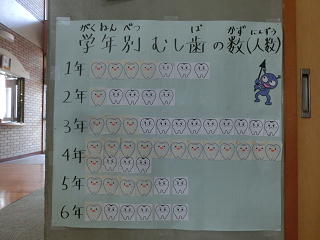 がくねんべつ ば かず にんずう
学年別 むし歯の数(人数)
1年
2年
3年
4年
5年
6年